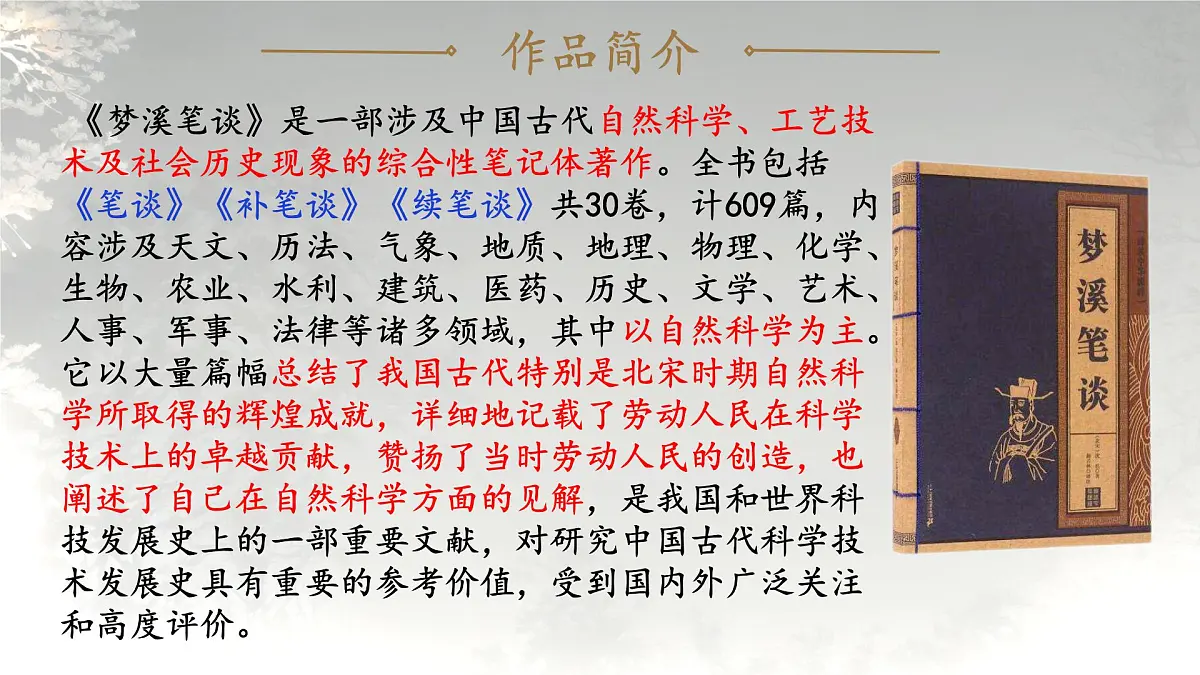 作品简介
《梦溪笔谈》是一部涉及中国古代自然科学、工艺技
术及社会历史现象的综合性笔记体著作。全书包括
《笔谈》《补笔谈》《续笔谈》共30卷，计609篇，内
容涉及天文、历法、气象、地质、地理、物理、化学、
生物、农业、水利、建筑、医药、历史、文学、艺术、
人事、军事、法律等诸多领域，其中以自然科学为主。
它以大量篇幅总结了我国古代特别是北宋时期自然科
学所取得的辉煌成就，详细地记载了劳动人民在科学
技术上的卓越贡献，赞扬了当时劳动人民的创造，也
阐述了自己在自然科学方面的见解，是我国和世界科
技发展史上的一部重要文献，对研究中国古代科学技
术发展史具有重要的参考价值，受到国内外广泛关注
和高度评价。
梦溪笔谈